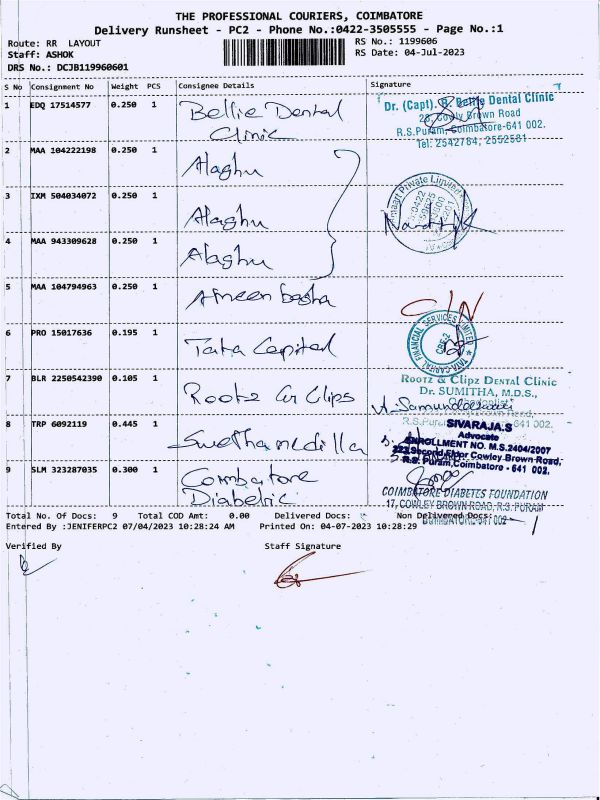 THE PROFESSIONAL COURIERS, COIMBATORE
Delivery Runsheet - PC2 - Phone No.:0422-3505555 - Page No.:1
Route: RR LAYOUT
RS No.: 1199606
Staff: ASHOK
RS Date: 04-Jul-2023
DRS No.: DCJB119960601
S No Consignment No Weight PCS Consignee Details Signature
1 EDQ 17514577 0.250 1 Bellie Dental
Clinic
Dr. (Capt). B. Bellie Dental Clinic
Cowly Brown Road
R.S.Puram, Coimbatore-641 002.
Tel: 2542784, 2552561
2 MAA 104222198 0.250 1 Alaghu
3 IXM 504034072 0.250 1 Alaghu
4 MAA 943309628 0.250 1 Alaghu
Private Limited
5 MAA 104794963 0.250 1 Afreen basha
6 PRO 15017636 0.195 1 Tata Capital
TATA CAPITAL FINANCIAL SERVICES LIMITED
CBE-2
7 BLR 2250542390 0.105 1 Rootz Clips
ROOTZ & CLIPZ DENTAL CLINIC
Dr. SUMITHA, M.D.S.,
641 002.
8 TRP 6092119 0.445 1
SIVARAJA.S
Advocate
ENROLLMENT NO. M.S.2404/2007
Second Floor Cowley Brown Road,
R.S. Puram, Coimbatore - 641 002.
9 SLM 323287035 0.300 1 Coimbatore
Diabetic
COIMBATORE DIABETES FOUNDATION
17, COWLEY BROWN ROAD, R.S. PURAM
COIMBATORE-641 002
Total No. Of Docs: 9 Total COD Amt: 0.00 Delivered Docs: Non Delivered Docs: 1
Entered By :JENIFERPC2 07/04/2023 10:28:24 AM Printed On: 04-07-2023 10:28:29
Verified By Staff Signature